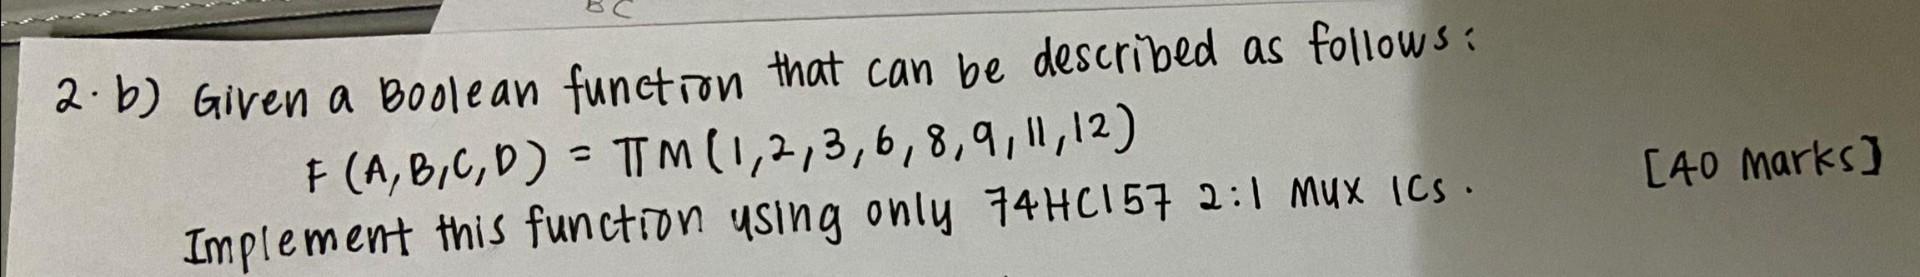 BC
2. b) Given a Boolean function that can be described as follows:
F (A,B,C,D) = πM (1,2,3,6,8,9,11,12)
[40 marks]
Implement this function using only 74HC157 2:1 Mux ICs.